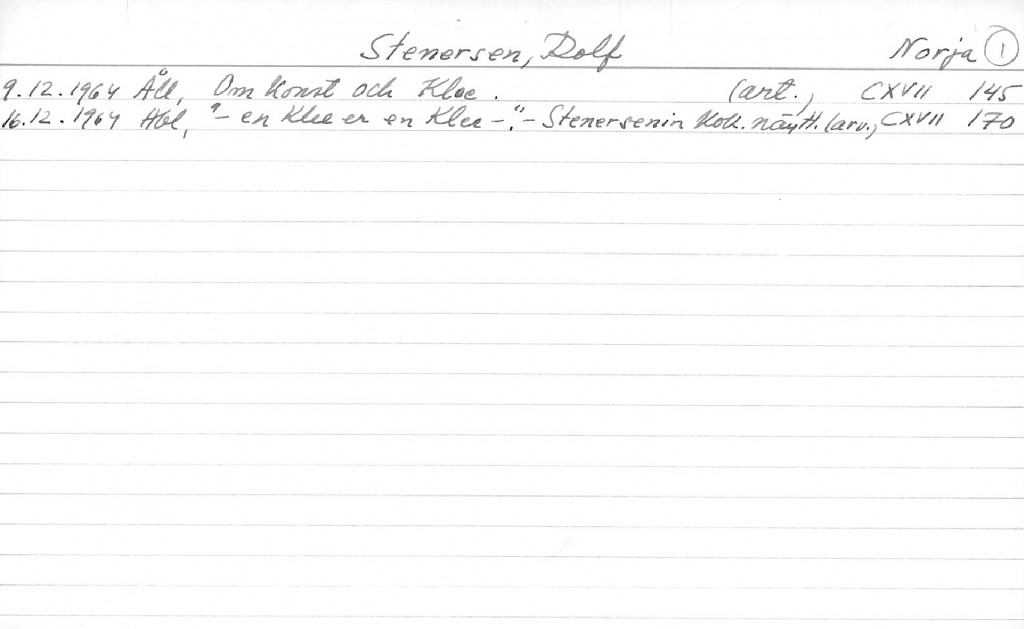 Stenersen, Rolf Norja 1
9.12.1964 Åll, Om konst och Klee. (art.) CXVII 145
16.12.1964 Hbl, "- en Klee er en Klee -". - Stenersenin kok. näytt. (arv., CXVII 170